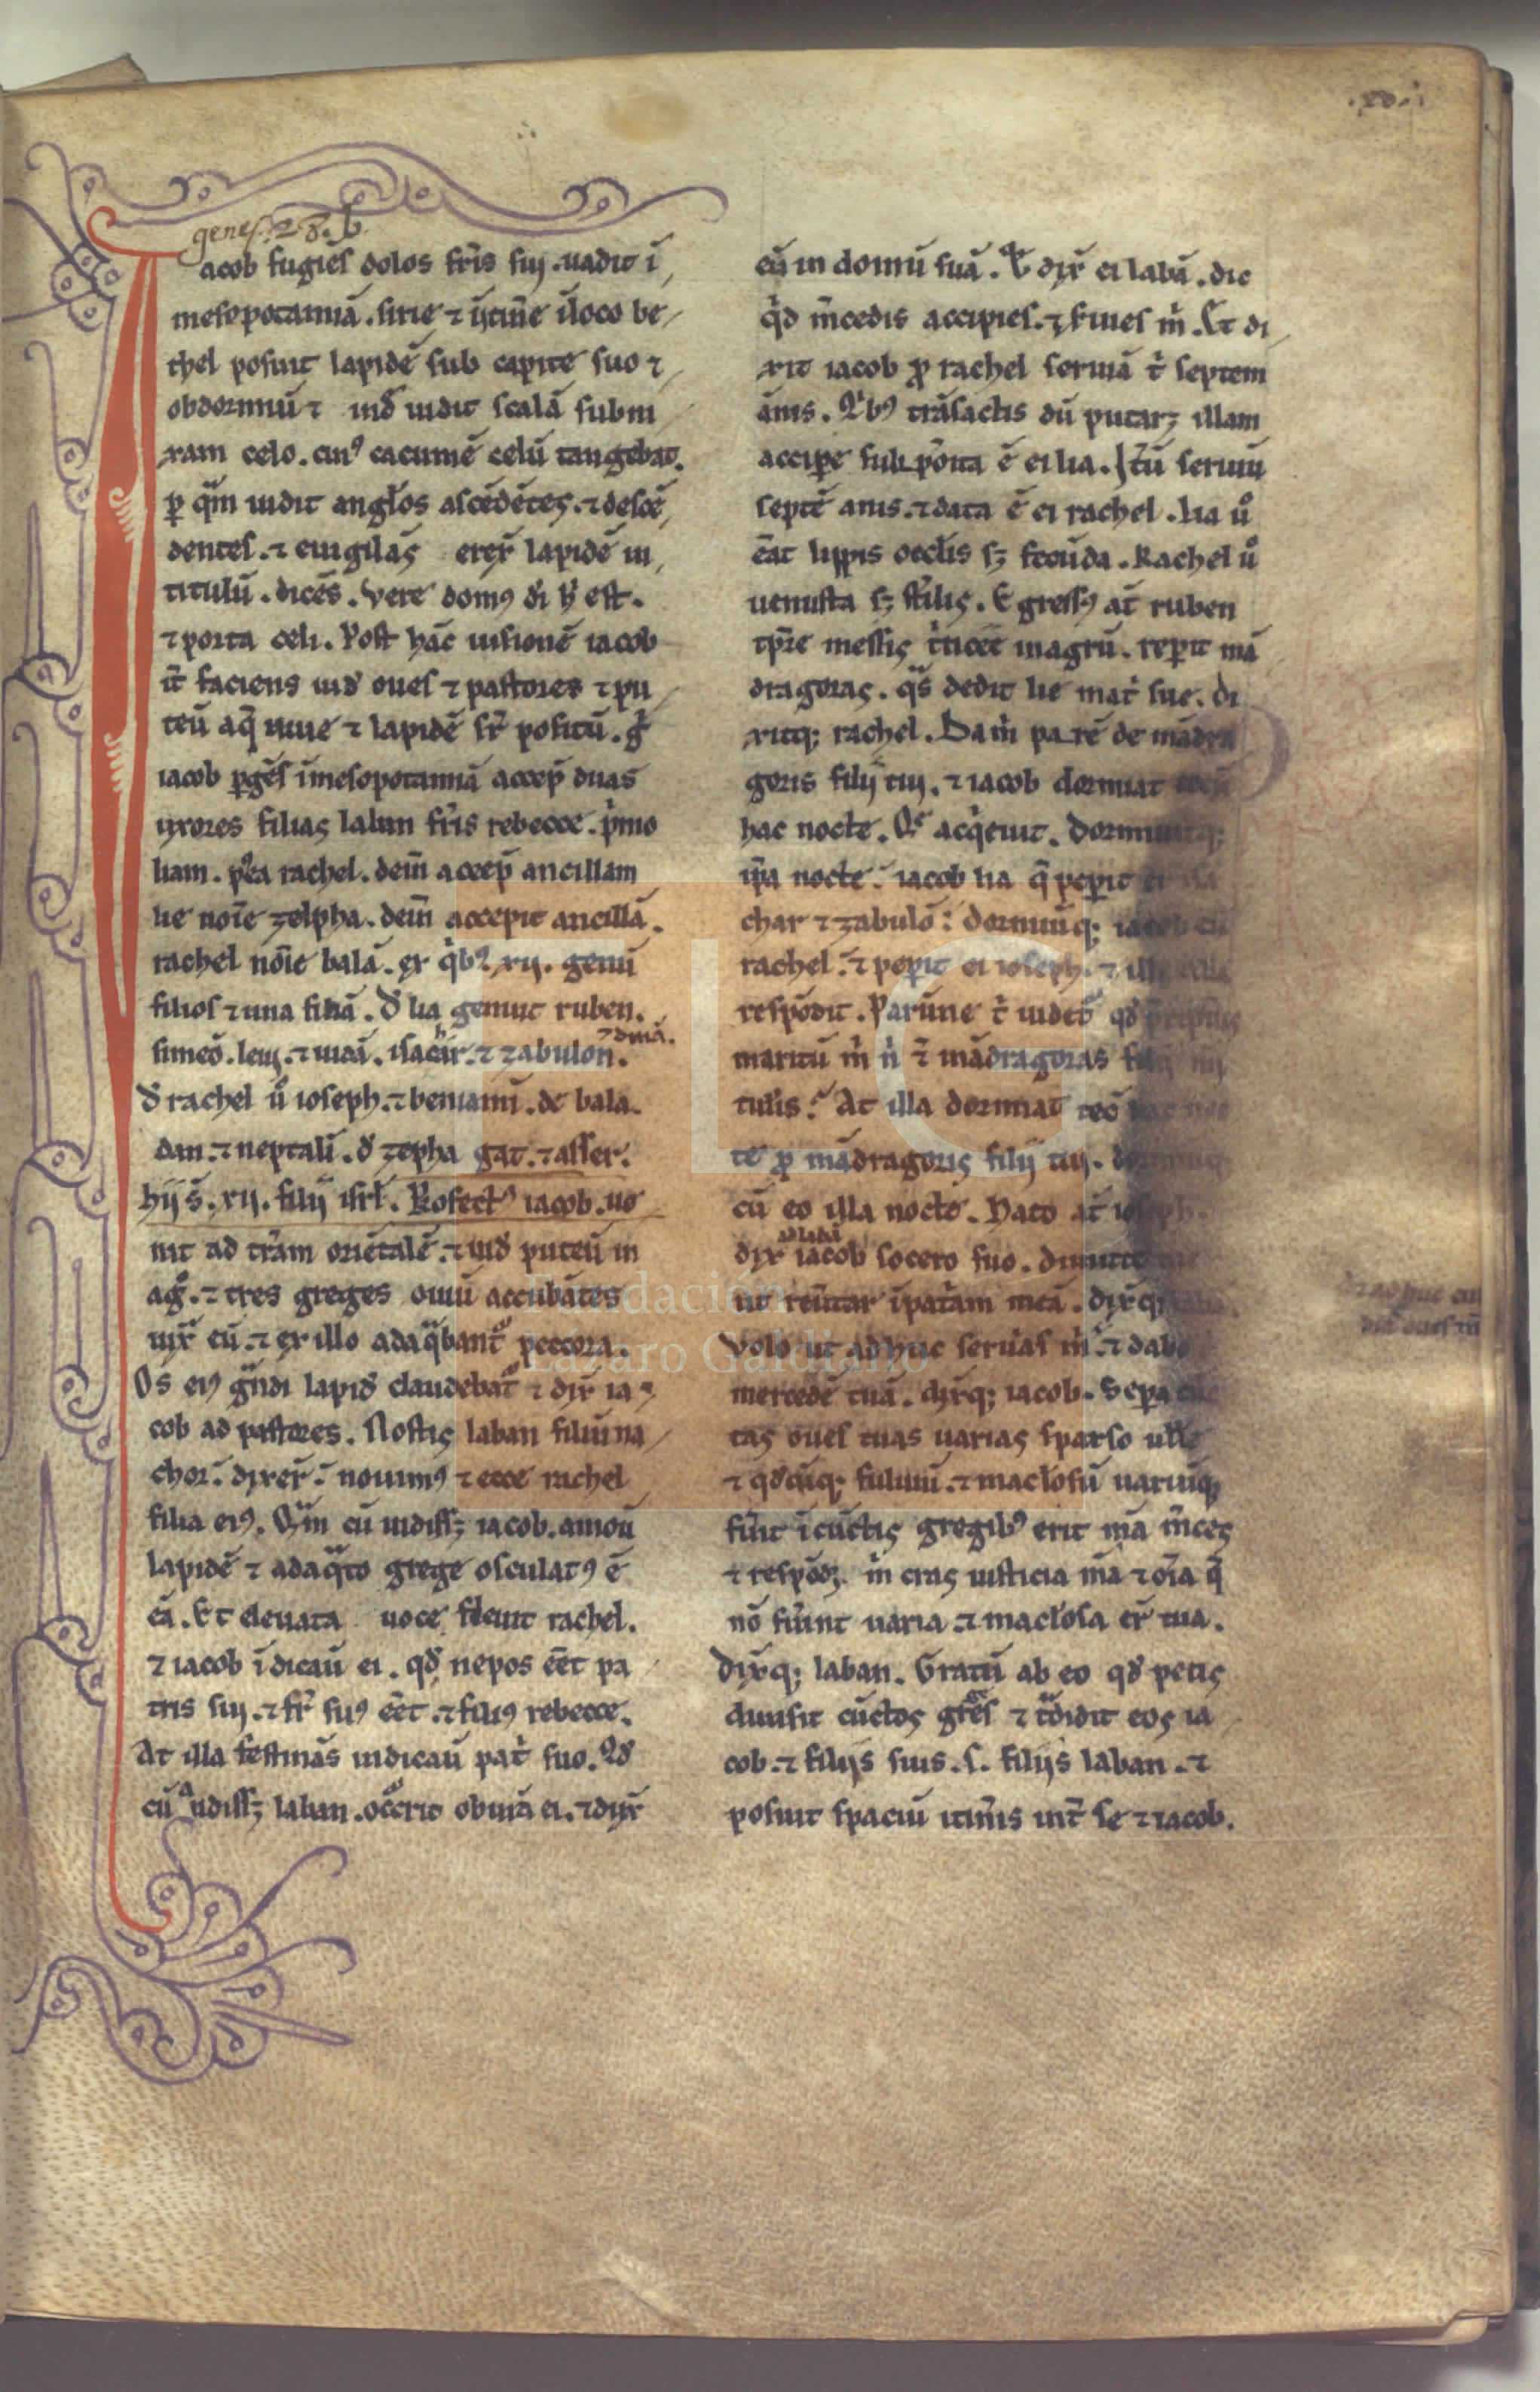 genes. 28. b
Iacob fugies dolos fr̄is sui . uadit ī
mesopotamiā . sirie ⁊ ītine īloco be
thel posuit lapidē sub capite suo ⁊
obdormiū ⁊ uidit scalā subni
xam celo . cuiꝰ cacumē celū tangebat .
ꝑ qm̄ uidit angl̄os ascēdētes . ⁊ descē
dentes . ⁊ euigilās erex̄ lapidē in
titulū . dicēs . Vere domꝰ dī ħ est .
⁊ porta celi . Post hāc uisionē iacob
it̄ faciens uid̄ oues ⁊ pastores ⁊ pu
teū aq̄ uiue ⁊ lapidē sr̄ positū .
iacob ꝑgēs īmesopotamiā accep̄ duas
uxores filias laban fr̄is rebecce . p̄mo
liam . rachel . dein̄ accep̄ ancillam
lie noīe zelpha . dein̄ accepit ancillā .
rachel noīe balā . ex q̄bꝰ . xii . genuī
filios ⁊ una filiā . lia genuit ruben .
⁊ dinā .
simeō . leui . ⁊ iudā . isachar . ⁊ zabulon .
rachel ū ioseph . ⁊ beniamī . de bala .
dan . ⁊ neptalī . zepha gat . ⁊ asser .
hii s̄ . xii . filii isrl̄ . Rofectꝰ iacob . ue
nit ad tr̄am oriētalē . ⁊ uid̄ puteū in
ag̊ . ⁊ tres greges ouiū accubātes
iux̄ eū . ⁊ ex illo adaq̄bant̄ peccora .
Os eiꝰ gn̄di lapid̄ claudebat̄ ⁊ dix̄ ia
cob ad pastores . Nostis laban filiū na
chor . dixer̄ . nouimꝰ ⁊ ecce rachel
filia eiꝰ . Qm̄ cū uidissꝫ iacob . amou
lapidē ⁊ adaq̄to grege osculatꝰ ē
eā . Et eleuata uoce fleuit rachel .
⁊ iacob īdicaū ei . qd̄ nepos eēt pa
tris sui . ⁊ fr̄ suꝰ eēt . ⁊ filiꝰ rebecce .
At illa festinās indicaū pat̄ suo . Qd̄
cū audissꝫ laban . occ̄rit obuiā ei . ⁊ dix̄
eū in domū suā . Et dix̄ ei labā . dic
q̄d m̄cedis accipies . ⁊ s̄uies m̄ . Et di
xit iacob ꝓ rachel seruiā t̄ septem
ānis . Q̄bꝰ trāsactis dū putarꝫ illam
accipe sub posita ē ei lia . Itū seruiū
septē anis . ⁊ data ē ei rachel . lia ū
ēat lippis occl̄is sꝫ fecūda . Rachel ū
uenusta sꝫ st̄ilis . Egressꝰ at̄ ruben
tꝑe messis t̄ticee īnagrū . repit mā
dragoras . qs̄ dedit lie mat̄ sue . di
xitqꝫ rachel . Da m̄ pa rē de mādra
goris filii tui . ⁊ iacob dormiat tecū
hac nocte . acq̄euit . Dormiuitqꝫ
ip̄a nocte . iacob lia q̄ peperit ei isa
char ⁊ zabulō . dormiuiqꝫ iacob cū
rachel . ⁊ peperit ei ioseph . ⁊ illa
respōdit . Parūne t̄ uidet̄ qd̄
maritū m̄ n̄ ⁊ mādragoras filii mi
tul̄is . At illa dormiat tecū hac noc
te ꝓ mādragoris filii tui . dormiuitqꝫ
cū eo illa nocte . Nato at̄ ioseph .
ad labā
dix̄ iacob socero suo . dimitte me
ut reūtar īpat̄am meā . dix̄qꝫ labā .
Volo ut adhuc seruias m̄ . ⁊ dabo
mercedē tuā . dix̄qꝫ iacob . Sepa
tas oues tuas uarias sparso uell̄e
⁊ qd̄cūqꝫ fuluū . ⁊ macl̄osū uariūqꝫ
fūit īcūctis gregibꝰ erit m̄a m̄ces
⁊ respōdꝫ . m̄ cras iusticia m̄a ⁊ oīa q̄
nō fūint uaria ⁊ macl̄osa er̄ tua .
Dix̄qꝫ laban . Gratū ab eo qd̄ petis
diuisit cūctos gr̄es ⁊ t̄didit eos ia
cob . ⁊ filiis suis . s . filiis laban . ⁊
posuit spaciū itin̄is int̄ se ⁊ iacob .
FLG
Fundación
Lázaro Galdiano